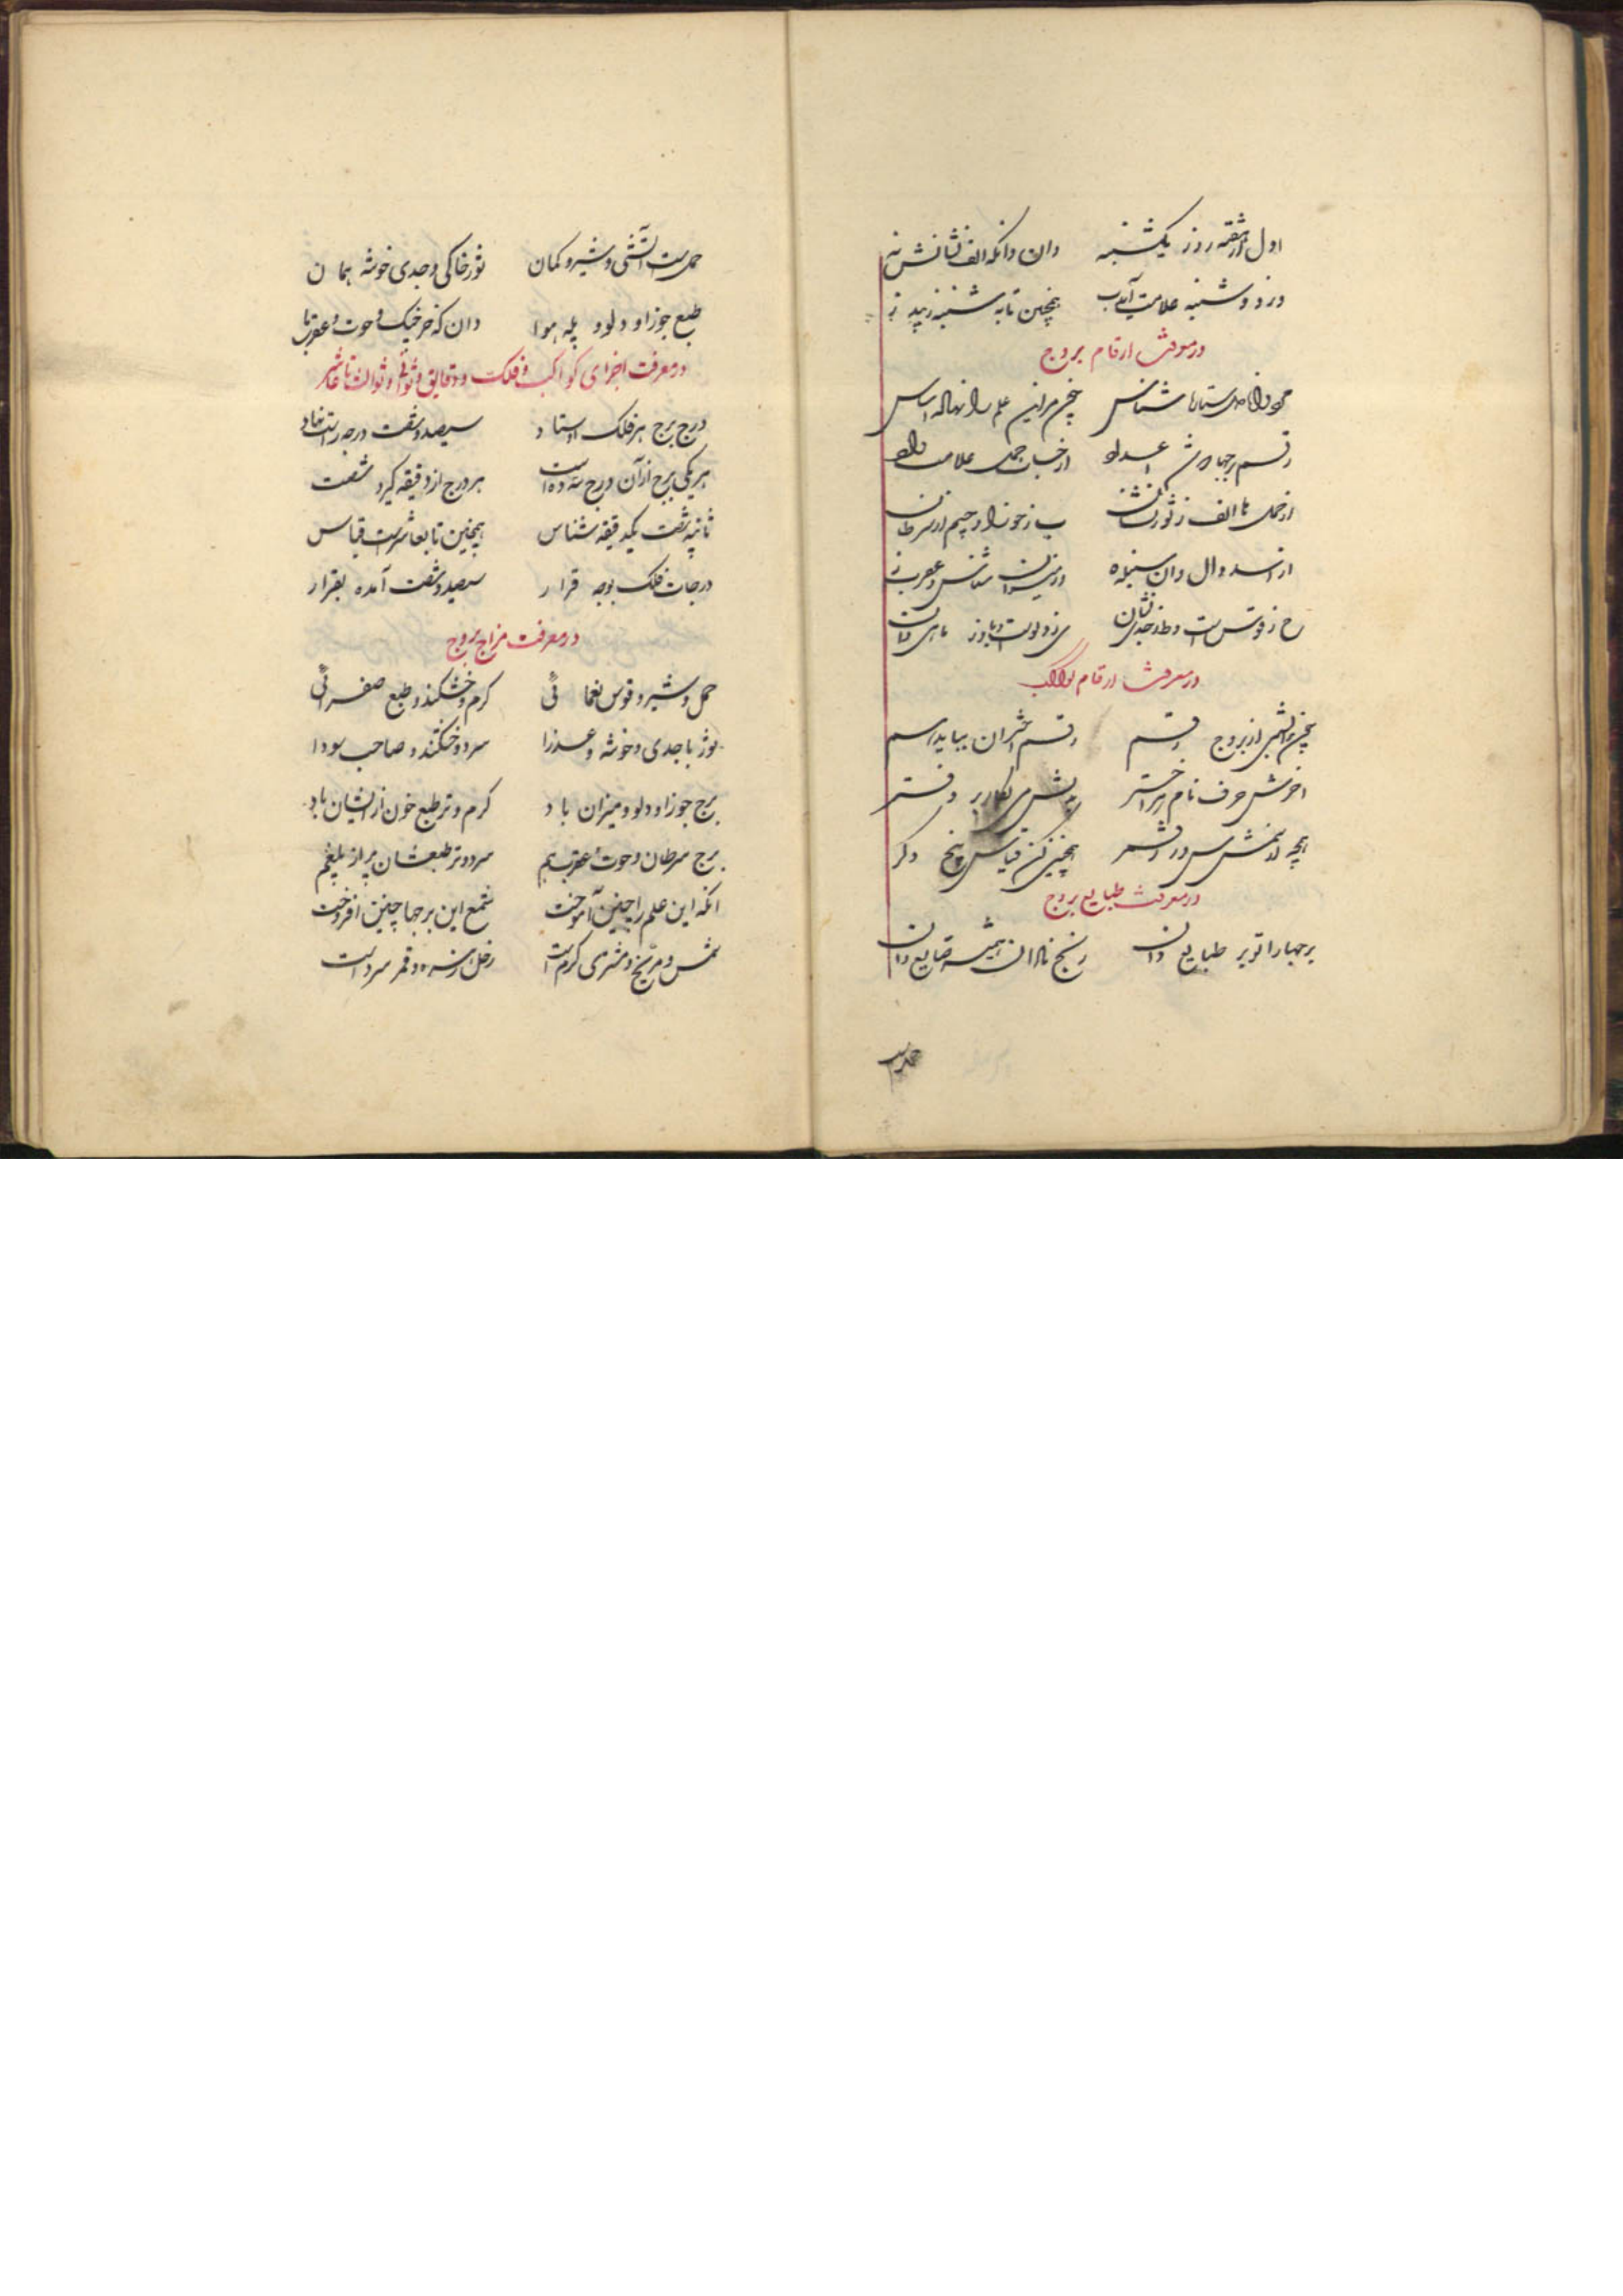 اول از هفته روز یکشنبه دان وانکه الف نشانش نه
روز دوشنبه علامت آمد ب همچنین تا به شنبه زیبد ز
در معرفت ارقام بروج
رقم برجها اعداد از حساب جمل علامت داد
از حمل تا الف ز ثور نشان ب ز جوزا و جیم از سرطان
از اسد دال دان ز سنبله ه و ز میزان شناس و عقرب ز
ح ز قوس است و ط ز جدی نشان ی ز دلو است و یا ز ماهی دان
در معرفت ارقام کواکب
چون بدانستی از بروج رقم رقم اختران بباید هم
آخرش حرف نام هر اختر بر دفتر
همچو از شمس س در قمر ر همچنین کن قیاس پنج دکر
در معرفت طبایع بروج
برجها را تو بر طبایع دان رنج نادان همیشه ضایع دان
حملست
حملست آتشی و شیر و کمان ثور خاکی و جدی خوشه همان
طبع جوزا و دلو و پله هوا دان که خرچنک و حوت و عقرب ما
در معرفت اجزای کواکب و فلک و دقایق و ثوانی و ثوالث تا عاشر
درج برج هر فلک استاد سیصد و شصت درجه راست نهاد
هر یکی برج از آن درج سه ده است هر درج از دقیقه کیرد شصت
ثانیه شصت یکدقیقه شناس همچنین تا بعاشرست قیاس
درجات فلک بوجه قرار سیصد و شصت آمده بقرار
در معرفت مزاج بروج
حمل و شیر و قوس نغمائی کرم و خشکند و طبع صفرائی
ثور با جدی و خوشه و عذرا سرد و خشکند و صاحب سودا
برج جوزا و دلو و میزان باد کرم و تر طبع خون از ایشان باد
برج سرطان و حوت و عقرب هم سرد و تر طبعشان پر از بلغم
آنکه این علم را چنین آموخت شمع این برجها چنین افروخت
شمس و مریخ و مشتری کرم است زحل و زهره و قمر سرد است